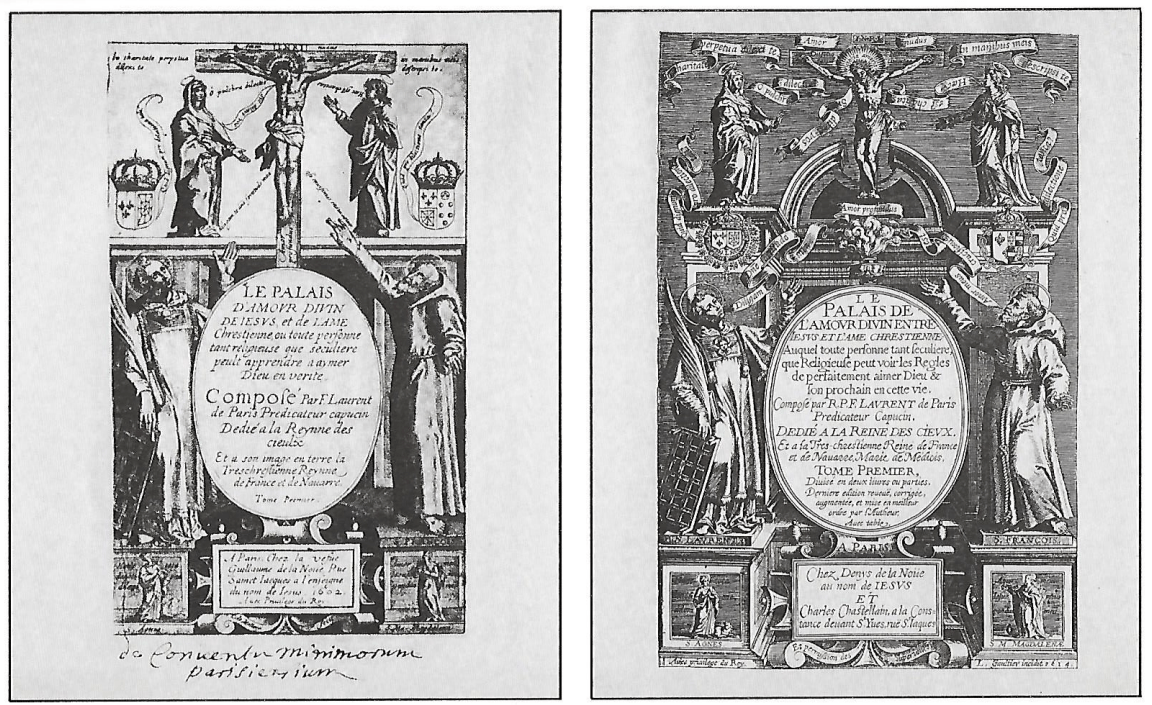 In charitate perpetua
dilexi te
in manibus meis
descripsi te.
LE PALAIS
D'AMOVR DIVIN
DE IESVS, et de LAME
Chrestienne, ou toute personne
tant religieuse que seculiere
peult apprendre a aymer
Dieu en verite.
Compose Par F. Laurent
de Paris Predicateur capucin
Dedie a la Reynne des
cieulx
Et a son image en terre la
Treschrestienne Reynne
de france et de Nauarre.
Tome Premier.
A Paris, Chez la vefue
Guillaume de la Noüe, Rue
Sainct Iacques a l'enseigne
du nom de Iesus 1602
Auec Priuilege du Roy.
de Conventu minimorum
parisiensium
perpetua dilexi te
Amor
nudus
In manibus meis
descripsi te
charitate
dilecte
Amor profundus
LE
PALAIS DE
L'AMOVR DIVIN ENTRE
IESVS ET L'AME CHRESTIENNE
Auquel toute personne tant seculiere,
que Religieuse peut voir les Regles
de perfaitement aimer Dieu &
son prochain en cette vie.
Compose par R.P.F. LAVRENT de Paris
Predicateur Capucin.
DEDIE A LA REINE DES CIEVX.
Et a la Tres-chrestienne Reine de France
et de Nauarre, Marie de Medicis.
TOME PREMIER,
Diuise en deux liures ou parties.
Derniere edition reueuë, corrigée,
augmentée, et mise en meilleur
ordre par l'Autheur.
Auec table.
S. FRANCOIS.
A PARIS
Chez Denys de la Noüe
au nom de IESVS
ET
Charles Chastellain, a la Cons-
tance deuant St Yues, rue St Iaques
S. AGNES
M. MAGDALENÆ
Auec priuilege du Roy.
L. Gaultier incidit 1614.